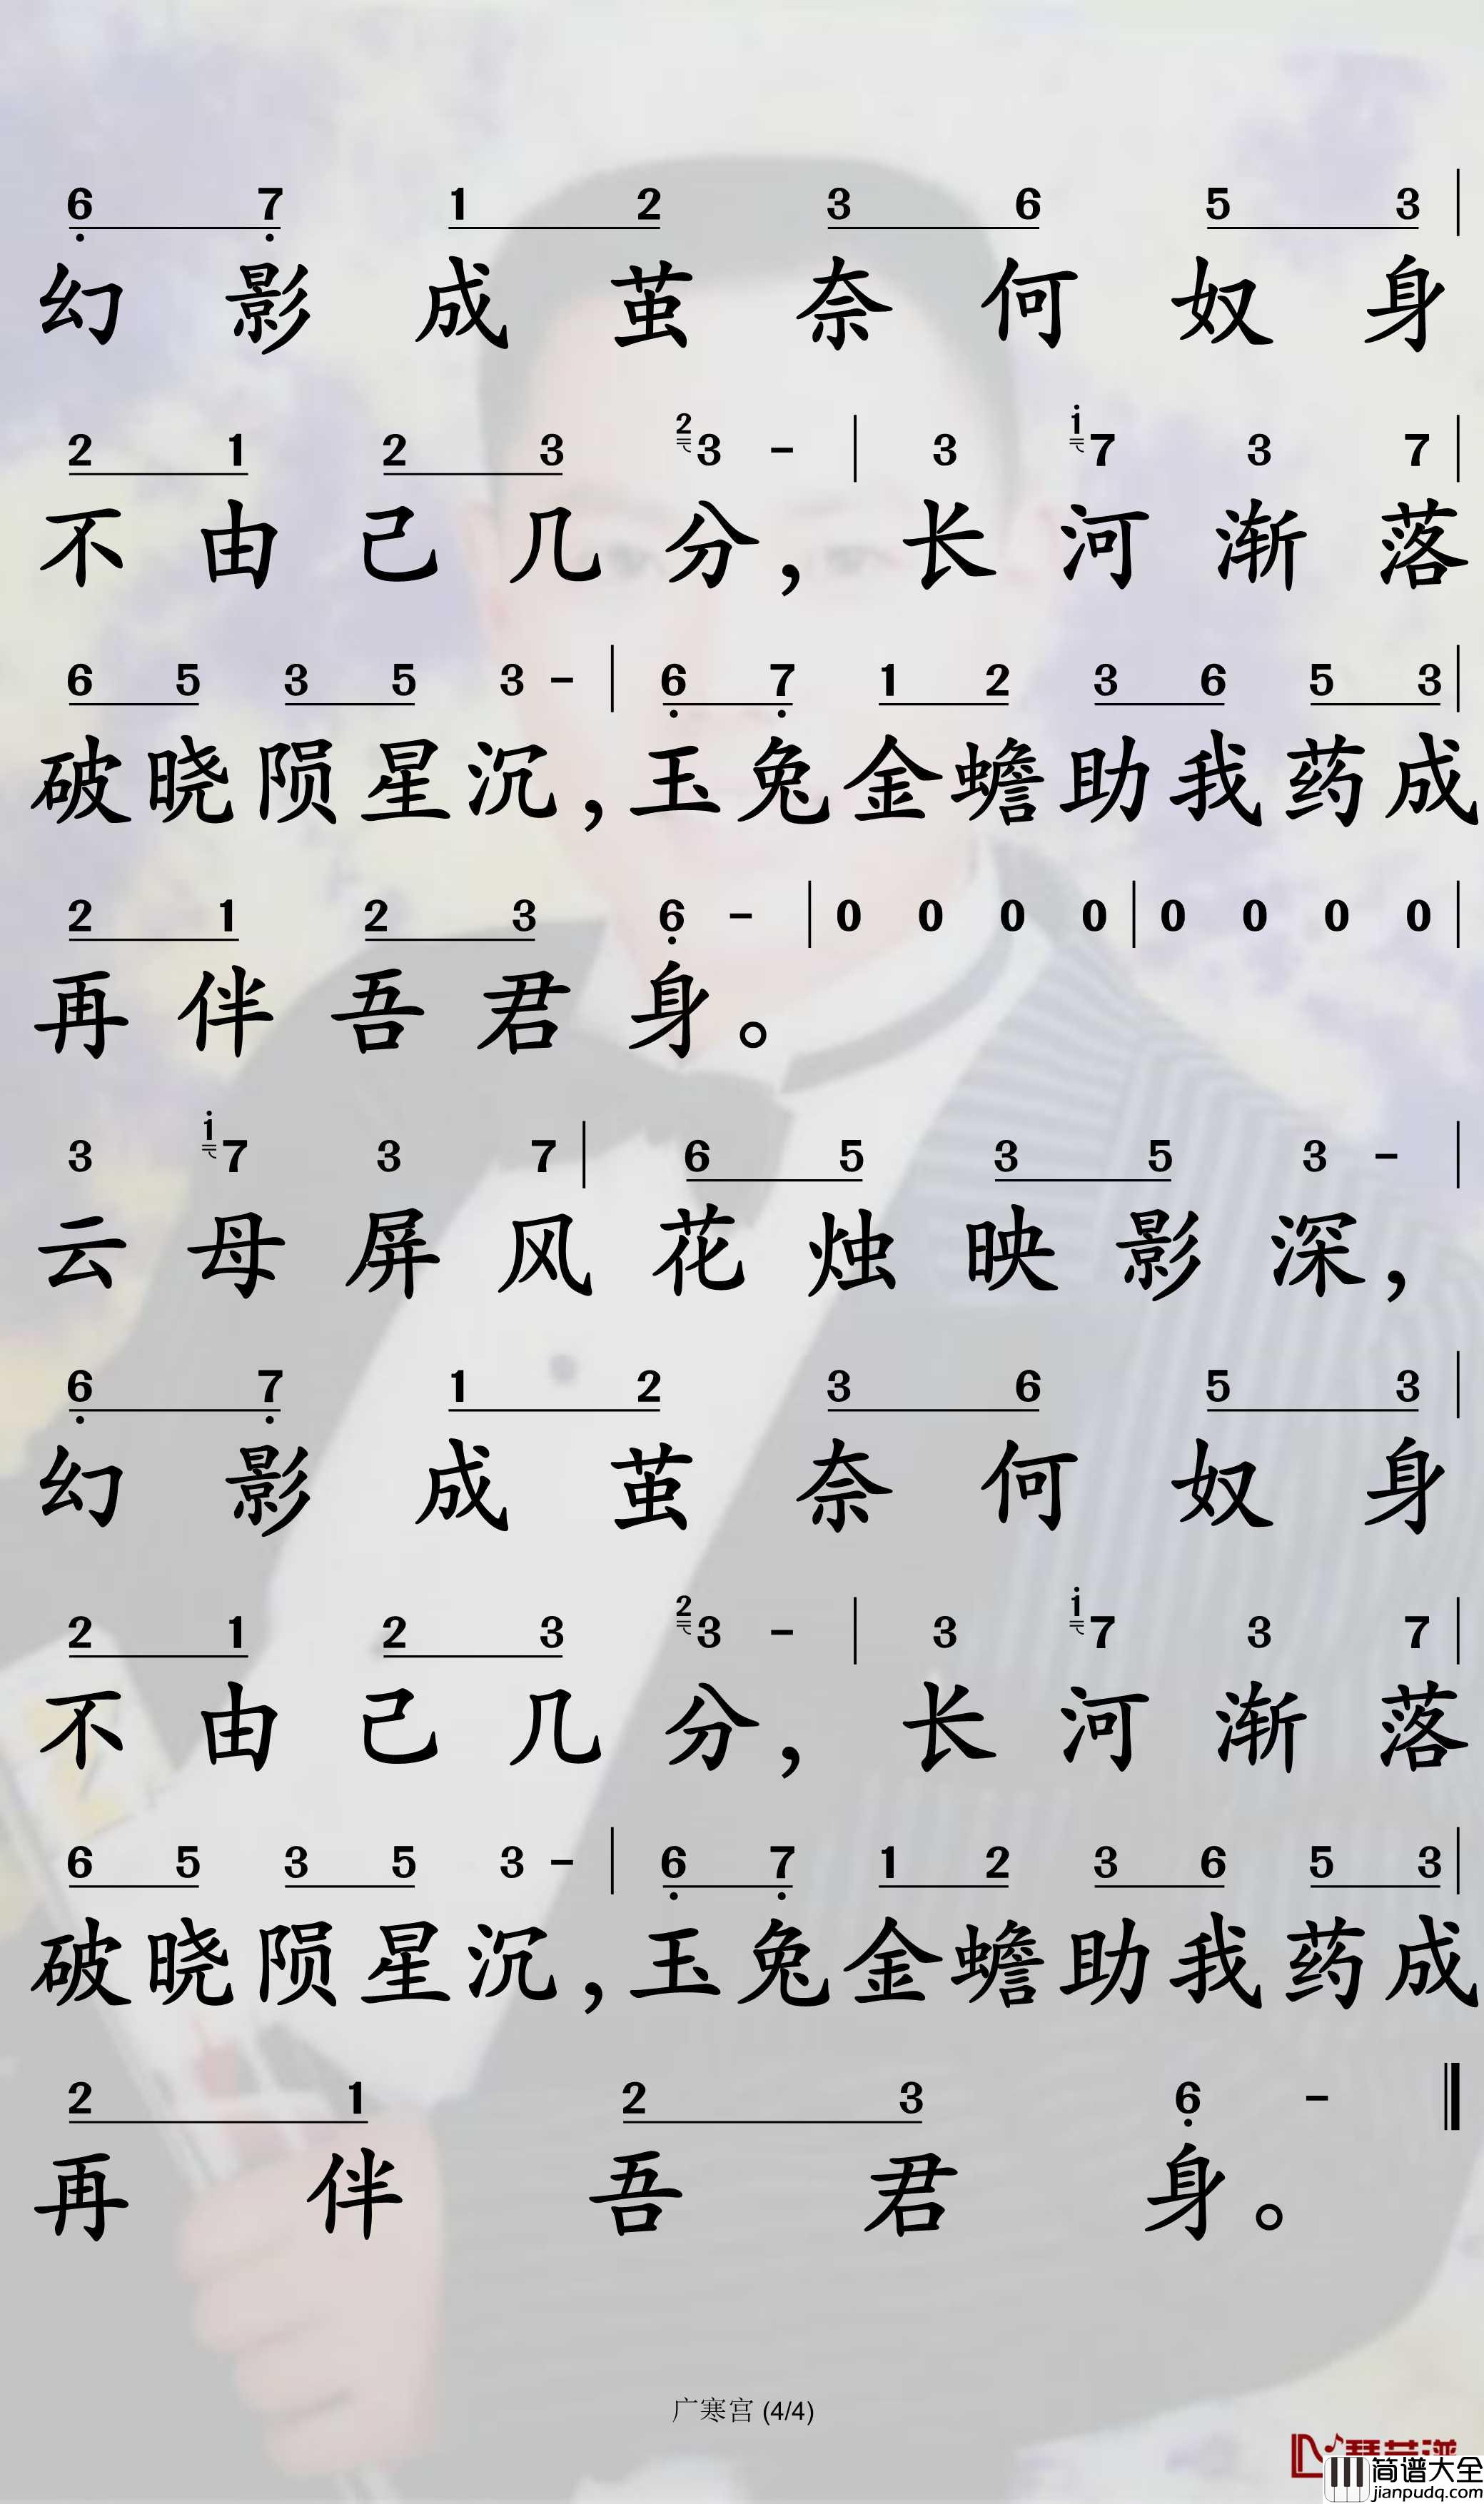 6 7 1 2 3 6 5 3
幻影成茧奈何奴身
2 1 2 3 2 3 - 3 i 7 3 7
不由己几分，长河渐落
6 5 3 5 3 - 6 7 1 2 3 6 5 3
破晓陨星沉，玉兔金蟾助我药成
2 1 2 3 6 - 0 0 0 0 0 0 0 0
再伴吾君身。
3 i 7 3 7 6 5 3 5 3 -
云母屏风花烛映影深，
6 7 1 2 3 6 5 3
幻影成茧奈何奴身
2 1 2 3 2 3 - 3 i 7 3 7
不由己几分，长河渐落
6 5 3 5 3 - 6 7 1 2 3 6 5 3
破晓陨星沉，玉兔金蟾助我药成
2 1 2 3 6 -
再伴吾君身。
广寒宫 (4/4)
简谱大全
jianpudq.com